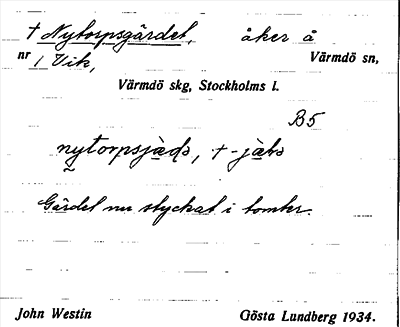 † Nytorpsgärdet, åker å
nr 1 Vik, Värmdö sn,
Värmdö skg, Stockholms l.
B5
nytorpsjæ̀ḍs, +-jæ̀ts
Gärdet nu styckat i tomter.
John Westin Gösta Lundberg 1934.